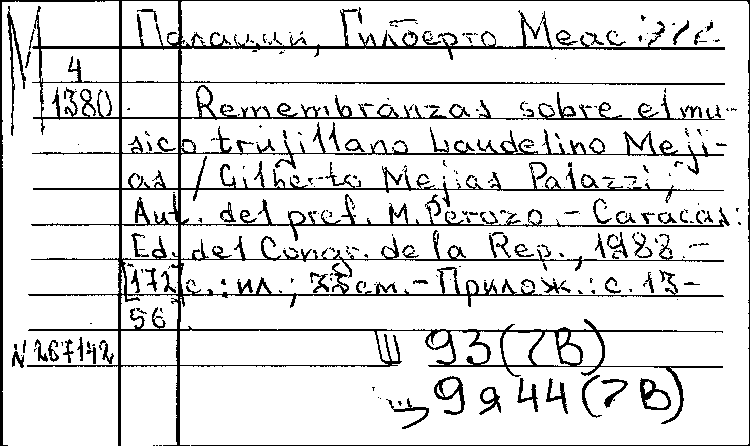 Палацци, Гилберто Меас
М
4
1380
Remembranzas sobre el mu-
sico trujillano Laudelino Meji-
as / Gilberto Mejias Palazzi;
Aut. del pref. M. Perozo. - Caracas:
Ed. del Congr. de la Rep., 1988. -
[172]с.: ил.; 33см. - Прилож.: с. 13-
56.
N 267142
Ш 93(7В)
Щ 9я44(7В)